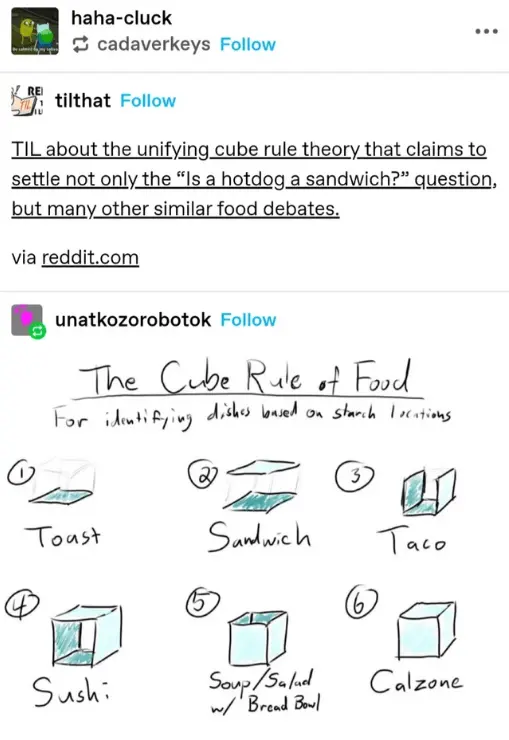 haha-cluck
cadaverkeys Follow
REI
TIL
tilthat Follow
TIL about the unifying cube rule theory that claims to
settle not only the “Is a hotdog a sandwich?” question,
but many other similar food debates.
via reddit.com
unatkozorobotok Follow
The Cube Rule of Food
For identifying dishes based on starch locations
1 2 3
Toast Sandwich Taco
4 5 6
Sushi Soup/Salad Calzone
w/ Bread Bowl